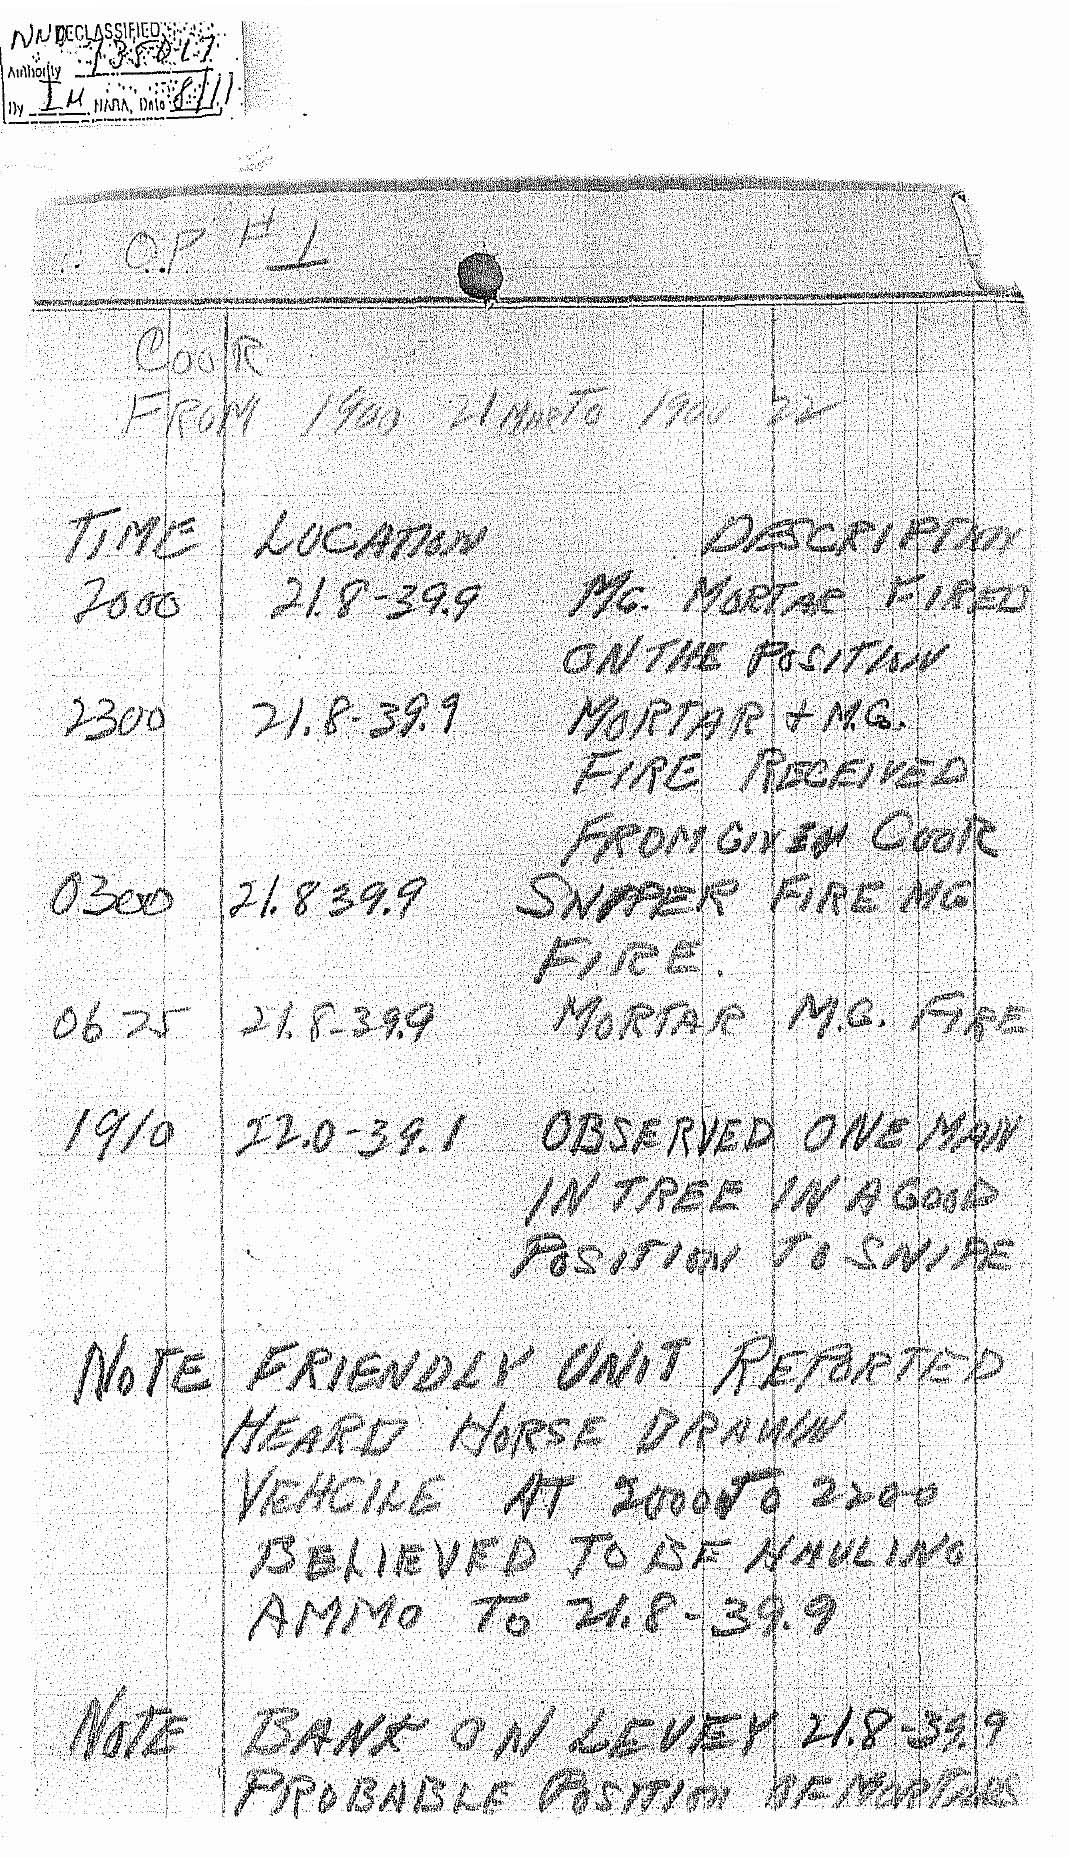 NND DECLASSIFIED
Authority 735017
By IM NARA, Date 8/11
O.P. # 1
COOR
FROM 1900 21 MAR TO 1900 22
TIME LOCATION DESCRIPTION
2000 21.8-39.9 MG. MORTAR FIRED
ON THE POSITION
2300 21.8-39.9 MORTAR + M.G.
FIRE RECEIVED
FROM GIVEN COOR
0300 21.8 39.9 SNIPPER FIRE MG
FIRE.
0625 21.8-39.9 MORTAR M.G. FIRE
1910 22.0-39.1 OBSERVED ONE MAN
IN TREE IN A GOOD
POSITION TO SNIPE
NOTE FRIENDLY UNIT REPORTED
HEARD HORSE DRAWN
VEHCILE AT 2000 TO 2200
BELIEVED TO BE HAULING
AMMO TO 21.8-39.9
NOTE BANK ON LEVEY 21.8-39.9
PROBABLE POSITION OF MORTARS